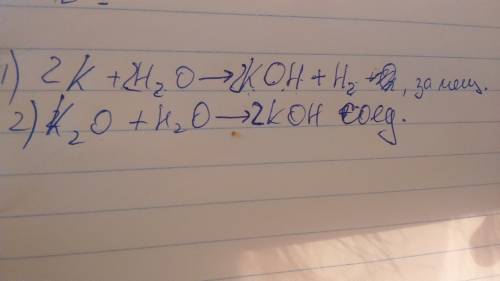 1) 2K + 2H₂O → 2KOH + H₂ , замещ.
2) K₂O + H₂O → 2KOH соед.